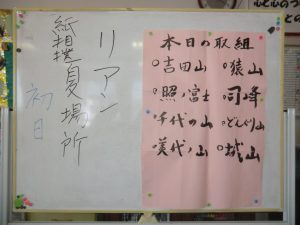 リアン
紙相撲夏場所
初日
本日の取組
吉田山 猿山
照ノ富士 司峰
千代の山 どんぐり山
美代ノ山 城山
心と心のつ